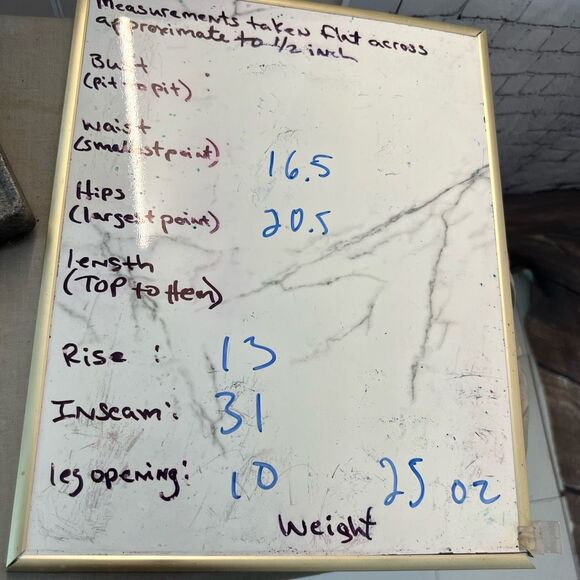 Measurements taken flat across
approximate to 1/2 inch
Bust :
(pit to pit)
Waist
(smallest point) 16.5
Hips
(largest point) 20.5
length
(TOP to Hem)
Rise : 13
Inseam: 31
leg opening: 10 25 oz
Weight